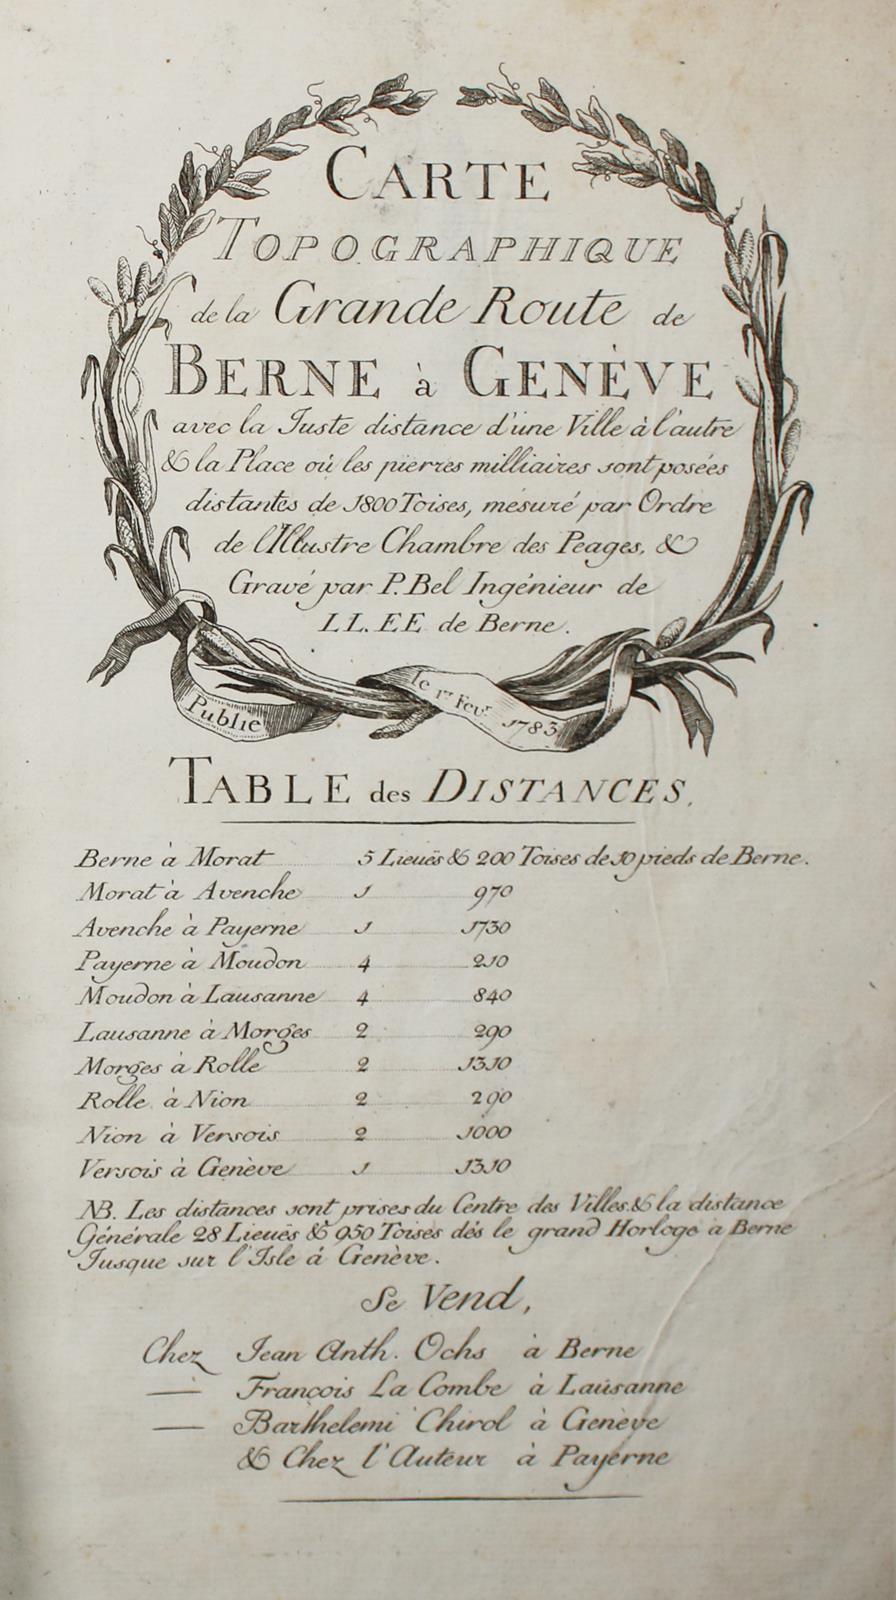 CARTE
TOPOGRAPHIQUE
de la Grande Route de
BERNE à GENÈVE
avec la Juste distance d'une Ville à l'autre
& la Place où les pierres milliaires sont posées
distantes de 1800 Toises, mesuré par Ordre
de l'Illustre Chambre des Peages, &
Gravé par P. Bel Ingénieur de
LL. EE de Berne.
Publié le 1r Fevr 1783
TABLE des DISTANCES.
Berne à Morat 5 Lieuës & 200 Toises de 10 pieds de Berne.
Morat à Avenche 1 970
Avenche à Payerne 1 1730
Payerne à Moudon 4 210
Moudon à Lausanne 4 840
Lausanne à Morges 2 290
Morges à Rolle 2 1310
Rolle à Nion 2 290
Nion à Versois 2 1000
Versois à Genève 1 1310
NB. Les distances sont prises du Centre des Villes & la distance
Générale 28 Lieuës & 950 Toises dés le grand Horloge à Berne
Jusque sur l'Isle à Genève.
Se Vend,
Chez Jean Anth. Ochs à Berne
— François La Combe à Lausanne
— Barthelemi Chirol à Genève
& Chez l'Auteur à Payerne